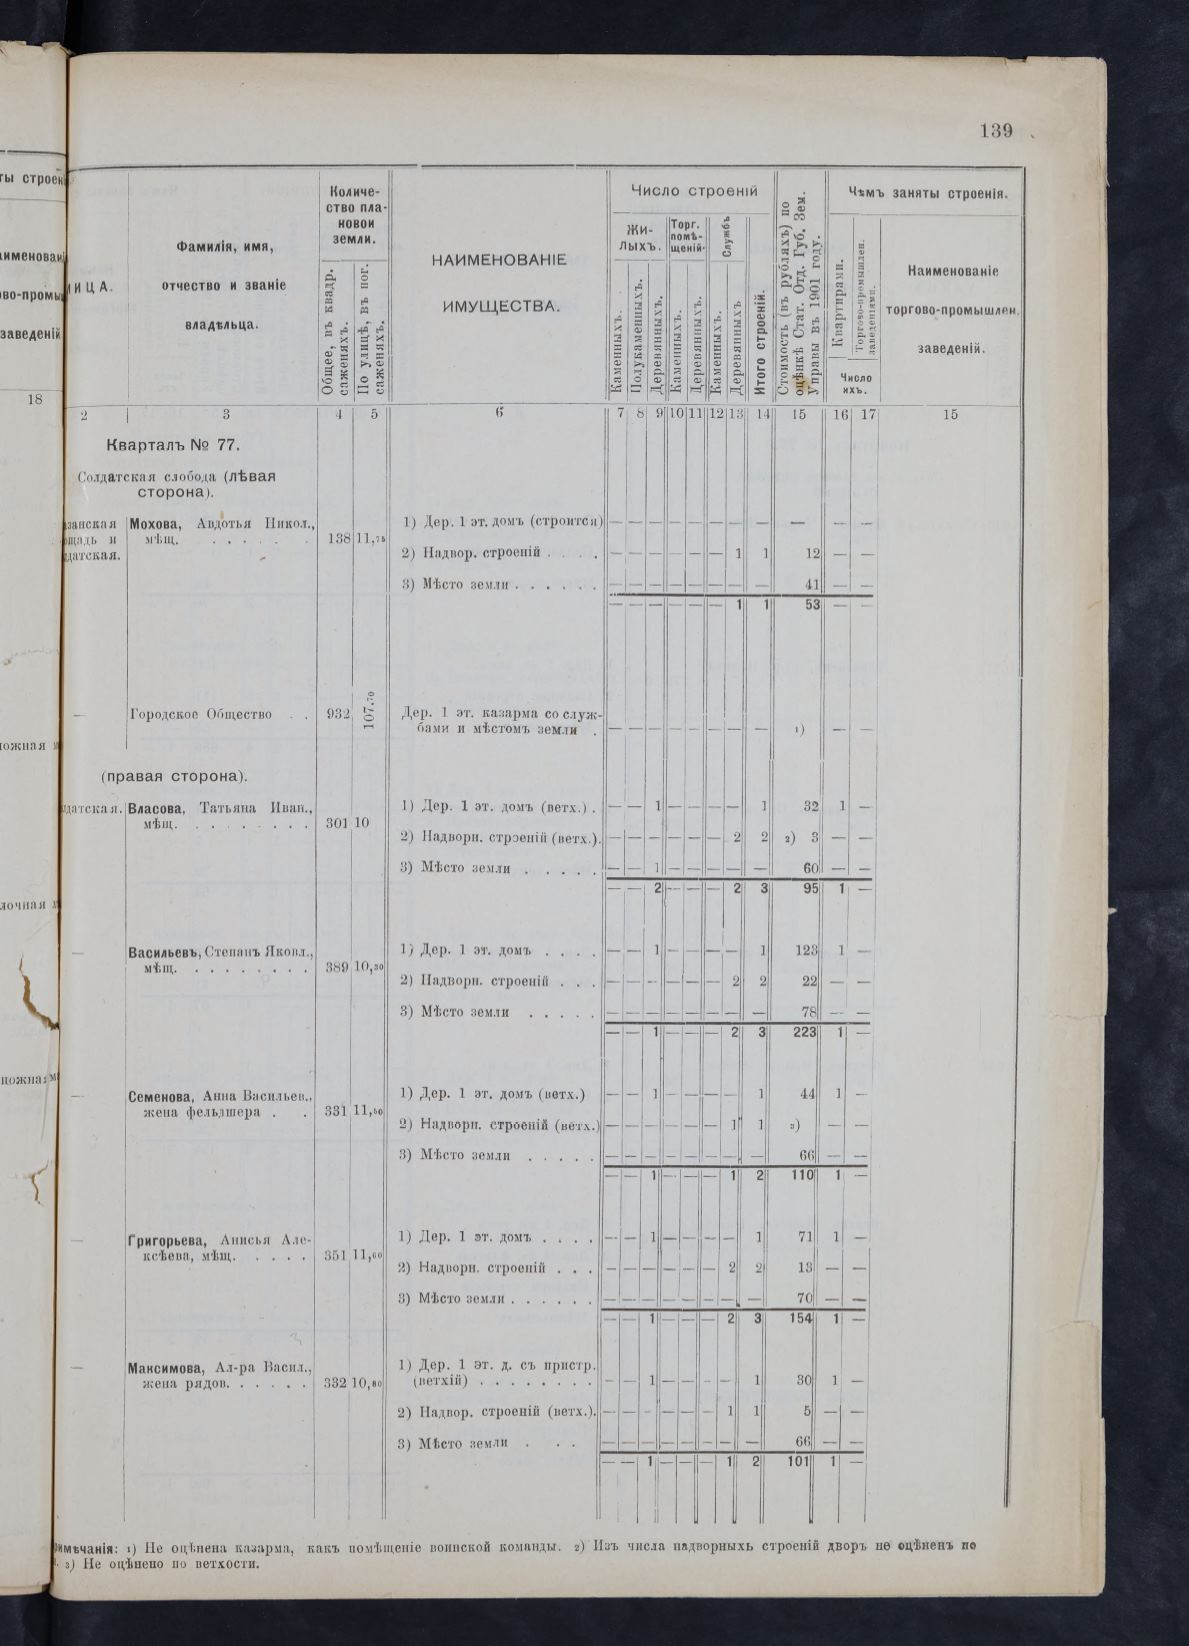 139
ты строен
именован
во-промы
заведеній
18
ИЦА.
Фамилія, имя,
отчество и званіе
владѣльца.
Количе-
ство пла-
новой
земли.
Общее, въ квадр.
саженяхъ.
По улицѣ, въ пог.
саженяхъ.
НАИМЕНОВАНІЕ
ИМУЩЕСТВА.
Число строеній
Жи-
лыхъ.
Торг.
помѣ-
щеній.
Службъ
Каменныхъ.
Полукаменныхъ.
Деревянныхъ.
Каменныхъ.
Деревянныхъ.
Каменныхъ.
Деревянныхъ
Итого строеній.
Стоимость (въ рубляхъ) по
оцѣнкѣ Стат. Отд. Губ. Зем.
Управы въ 1901 году.
Чѣмъ заняты строенія.
Квартирами.
Торгово-промышлен.
заведеніями.
Число
ихъ.
Наименованіе
торгово-промышлен.
заведеній.
2 3 4 5 6 7 8 9 10 11 12 13 14 15 16 17 15
Кварталъ № 77.
Солдатская слобода (лѣвая
сторона).
занская Мохова, Авдотья Никол., 1) Дер. 1 эт. домъ (строится) — — — — — — — — — — —
щадь и мѣщ. . . . . . . 138 11,75
датская. 2) Надвор. строеній . . . . — — — — — — 1 1 12 — —
3) Мѣсто земли . . . . . . — — — — — — — — 41 — —
— — — — — — 1 1 53 — —
— Городское Общество . . 932 107,70 Дер. 1 эт. казарма со служ-
бами и мѣстомъ земли . — — — — — — — — 1) — —
ожная м
(правая сторона).
датская. Власова, Татьяна Иван., 1) Дер. 1 эт. домъ (ветх.) . — — 1 — — — — 1 32 1 —
мѣщ. . . . . . . . . 301 10
2) Надворн. строеній (ветх.). — — — — — — 2 2 2) 3 — —
3) Мѣсто земли . . . . . — — 1 — — — — — 60 — —
— — 2 — — — 2 3 95 1 —
лочная
— Васильевъ, Степанъ Яковл., 1) Дер. 1 эт. домъ . . . . — — 1 — — — — 1 123 1 —
мѣщ. . . . . . . . . 389 10,30
2) Надворн. строеній . . . — — — — — — 2 2 22 — —
3) Мѣсто земли . . . . . — — — — — — — — 78 — —
— — 1 — — — 2 3 223 1 —
ложная м
— Семенова, Анна Васильев., 1) Дер. 1 эт. домъ (ветх.) — — 1 — — — — 1 44 1 —
жена фельдшера . . 331 11,50
2) Надворн. строеній (ветх.) — — — — — — 1 1 3) — —
3) Мѣсто земли . . . . . — — — — — — — — 66 — —
— — 1 — — — 1 2 110 1 —
— Григорьева, Анисья Але- 1) Дер. 1 эт. домъ . . . . — — 1 — — — — 1 71 1 —
ксѣева, мѣщ. . . . . 351 11,60
2) Надворн. строеній . . . — — — — — — 2 2 13 — —
3) Мѣсто земли . . . . . . — — — — — — — — 70 — —
— — 1 — — — 2 3 154 1 —
— Максимова, Ал-ра Васил., 1) Дер. 1 эт. д. съ пристр.
жена рядов. . . . . . 332 10,80 (ветхій) . . . . . . . . — — 1 — — — — 1 30 1 —
2) Надвор. строеній (ветх.). — — — — — — 1 1 5 — —
3) Мѣсто земли . . . — — — — — — — — 66 — —
— — 1 — — — 1 2 101 1 —
имѣчанія: 1) Не оцѣнена казарма, какъ помѣщеніе воинской команды. 2) Изъ числа надворныхъ строеній дворъ не оцѣненъ по
3) Не оцѣнено по ветхости.